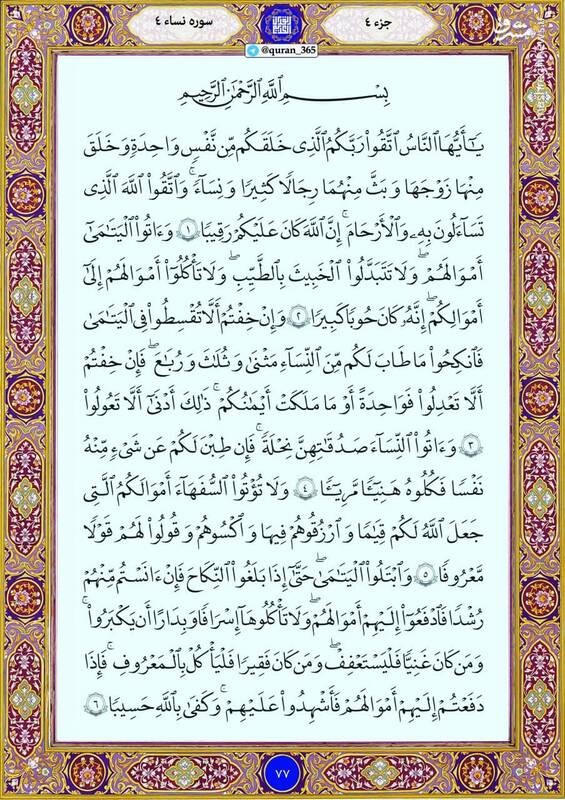 جزء ٤
سوره نساء ٤
@quran_365
بِسْمِ ٱللَّهِ ٱلرَّحْمَٰنِ ٱلرَّحِيمِ
يَٰٓأَيُّهَا ٱلنَّاسُ ٱتَّقُوا۟ رَبَّكُمُ ٱلَّذِى خَلَقَكُم مِّن نَّفْسٍ وَٰحِدَةٍ وَ خَلَقَ
مِنْهَا زَوْجَهَا وَ بَثَّ مِنْهُمَا رِجَالًا كَثِيرًا وَ نِسَآءً ۚ وَٱتَّقُوا۟ ٱللَّهَ ٱلَّذِى
تَسَآءَلُونَ بِهِۦ وَٱلْأَرْحَامَ ۚ إِنَّ ٱللَّهَ كَانَ عَلَيْكُمْ رَقِيبًا ١ وَ ءَاتُوا۟ ٱلْيَتَٰمَىٰٓ
أَمْوَٰلَهُمْ ۖ وَلَا تَتَبَدَّلُوا۟ ٱلْخَبِيثَ بِٱلطَّيِّبِ ۖ وَلَا تَأْكُلُوٓا۟ أَمْوَٰلَهُمْ إِلَىٰٓ
أَمْوَٰلِكُمْ ۚ إِنَّهُۥ كَانَ حُوبًا كَبِيرًا ٢ وَإِنْ خِفْتُمْ أَلَّا تُقْسِطُوا۟ فِى ٱلْيَتَٰمَىٰ
فَٱنكِحُوا۟ مَا طَابَ لَكُم مِّنَ ٱلنِّسَآءِ مَثْنَىٰ وَ ثُلَٰثَ وَ رُبَٰعَ ۖ فَإِنْ خِفْتُمْ
أَلَّا تَعْدِلُوا۟ فَوَٰحِدَةً أَوْ مَا مَلَكَتْ أَيْمَٰنُكُمْ ۚ ذَٰلِكَ أَدْنَىٰٓ أَلَّا تَعُولُوا۟
٣ وَ ءَاتُوا۟ ٱلنِّسَآءَ صَدُقَٰتِهِنَّ نِحْلَةً ۚ فَإِن طِبْنَ لَكُمْ عَن شَىْءٍ مِّنْهُ
نَفْسًا فَكُلُوهُ هَنِيٓـًٔا مَّرِيٓـًٔا ٤ وَلَا تُؤْتُوا۟ ٱلسُّفَهَآءَ أَمْوَٰلَكُمُ ٱلَّتِى
جَعَلَ ٱللَّهُ لَكُمْ قِيَٰمًا وَ ٱرْزُقُوهُمْ فِيهَا وَ ٱكْسُوهُمْ وَ قُولُوا۟ لَهُمْ قَوْلًا
مَّعْرُوفًا ٥ وَ ٱبْتَلُوا۟ ٱلْيَتَٰمَىٰ حَتَّىٰٓ إِذَا بَلَغُوا۟ ٱلنِّكَاحَ فَإِنْ ءَانَسْتُم مِّنْهُمْ
رُشْدًا فَٱدْفَعُوٓا۟ إِلَيْهِمْ أَمْوَٰلَهُمْ ۖ وَلَا تَأْكُلُوهَآ إِسْرَافًا وَ بِدَارًا أَن يَكْبَرُوا۟ ۚ
وَ مَن كَانَ غَنِيًّا فَلْيَسْتَعْفِفْ ۖ وَ مَن كَانَ فَقِيرًا فَلْيَأْكُلْ بِٱلْمَعْرُوفِ ۚ فَإِذَا
دَفَعْتُمْ إِلَيْهِمْ أَمْوَٰلَهُمْ فَأَشْهِدُوا۟ عَلَيْهِمْ ۚ وَ كَفَىٰ بِٱللَّهِ حَسِيبًا ٦
٧٧